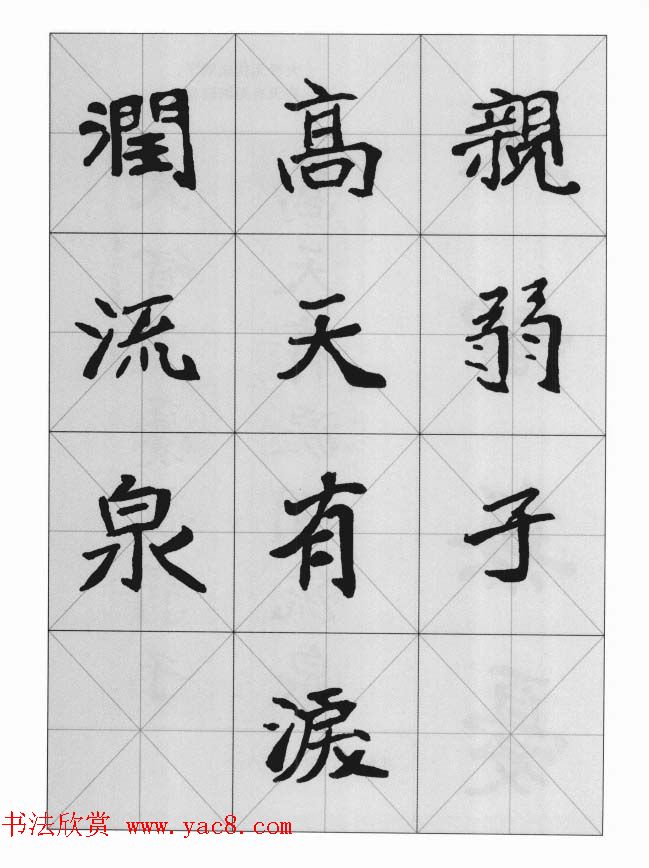 親弱子
高天有淚
潤流泉
书法欣赏 www.yac8.com